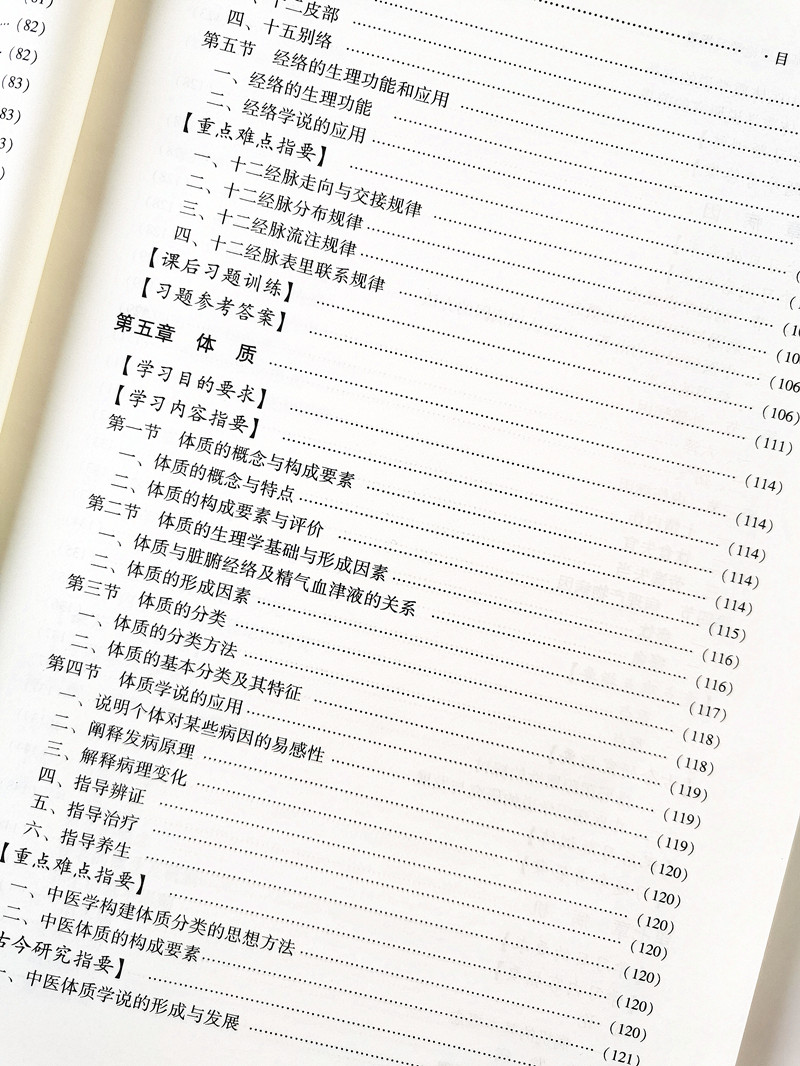 (82)
(82)
(83)
83)
3)
)
· 目
十二皮部
四、十五别络
第五节 经络的生理功能和应用
一、经络的生理功能
二、经络学说的应用
【重点难点指要】
一、十二经脉走向与交接规律
二、十二经脉分布规律
三、十二经脉流注规律
四、十二经脉表里联系规律 (106)
【课后习题训练】 (106)
【习题参考答案】 (111)
第五章 体 质 (114)
【学习目的要求】 (114)
【学习内容指要】 (114)
第一节 体质的概念与构成要素 (114)
一、体质的概念与特点 (114)
二、体质的构成要素与评价 (115)
第二节 体质的生理学基础与形成因素 (116)
一、体质与脏腑经络及精气血津液的关系 (116)
二、体质的形成因素 (117)
第三节 体质的分类 (118)
一、体质的分类方法 (118)
二、体质的基本分类及其特征 (119)
第四节 体质学说的应用 (119)
一、说明个体对某些病因的易感性 (119)
二、阐释发病原理 (120)
三、解释病理变化 (120)
四、指导辨证 (120)
五、指导治疗 (120)
六、指导养生 (120)
【重点难点指要】 (120)
一、中医学构建体质分类的思想方法 (120)
二、中医体质的构成要素 (121)
古今研究指要】
一、中医体质学说的形成与发展